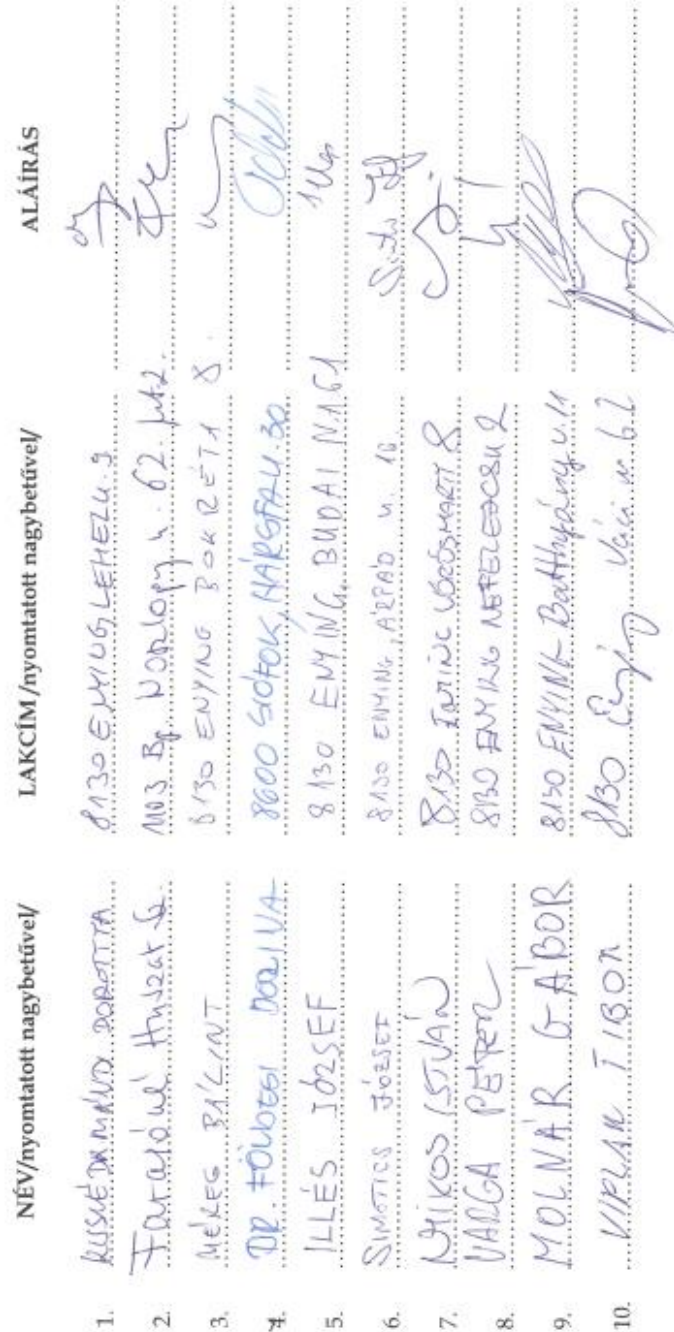 NÉV/nyomtatott nagybetűvel/ LAKCÍM /nyomtatott nagybetűvel/ ALÁÍRÁS
1. DOROTTYA 8130 ENYING, LEHEL U. 9
2. Faragóné Huszár Sz. 1103 Bp. Noszlopy u. 62. fszt 2.
3. MÉREG BÁLINT 8130 ENYING BOKRÉTA 8.
4. DR. FÖLDESI 8600 SIÓFOK, HÁRSFA U. 30
5. ILLÉS JÓZSEF 8130 ENYING, BUDAI N. 161 Illés
6. SIMOTICS JÓZSEF 8130 ENYING, ÁRPÁD u. 16
7. MIKOS ISTVÁN 8130 ENYING VÖRÖSMARTY 8
8. VARGA PÉTER 8130 ENYING NEFELEJCS U 2
9. MOLNÁR GÁBOR 8130 ENYING Batthyány u. 11
10. TIBOR 8130 Enying Váci u. 62